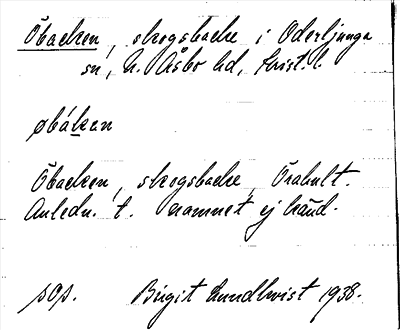 Öbacken, skogsbacke i Oderljunga
sn, N. Åsbo hd, Krist. l.
øbákan
Öbacken, skogsbacke, Örahult.
Anledn. t. namnet ej känd.
sop. Birgit Lundkvist 1938.